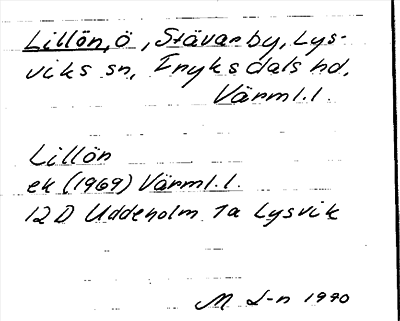 Lillön, ö, Stävarby, Lys-
viks sn, Fryksdals hd,
Värml.l.
Lillön
ek (1969) Värml.l.
12 D Uddeholm 1a Lysvik
M L-n 1990